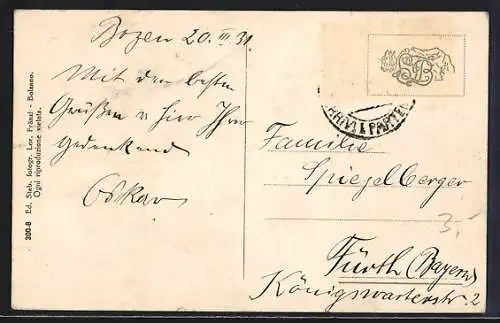 Bozen 20. III 31.
Mit den besten
Grüßen v hier Ihrer
gedenkend
Oskar
ARRIVI E PARTEN
Familie
Spiegelberger
3.
Fürth (Bayern)
Königswarterstr. 2
300-8 Ed. Stab. fotogr. Lor. Fränzl - Bolzano.
Ogni riproduzione vietata.